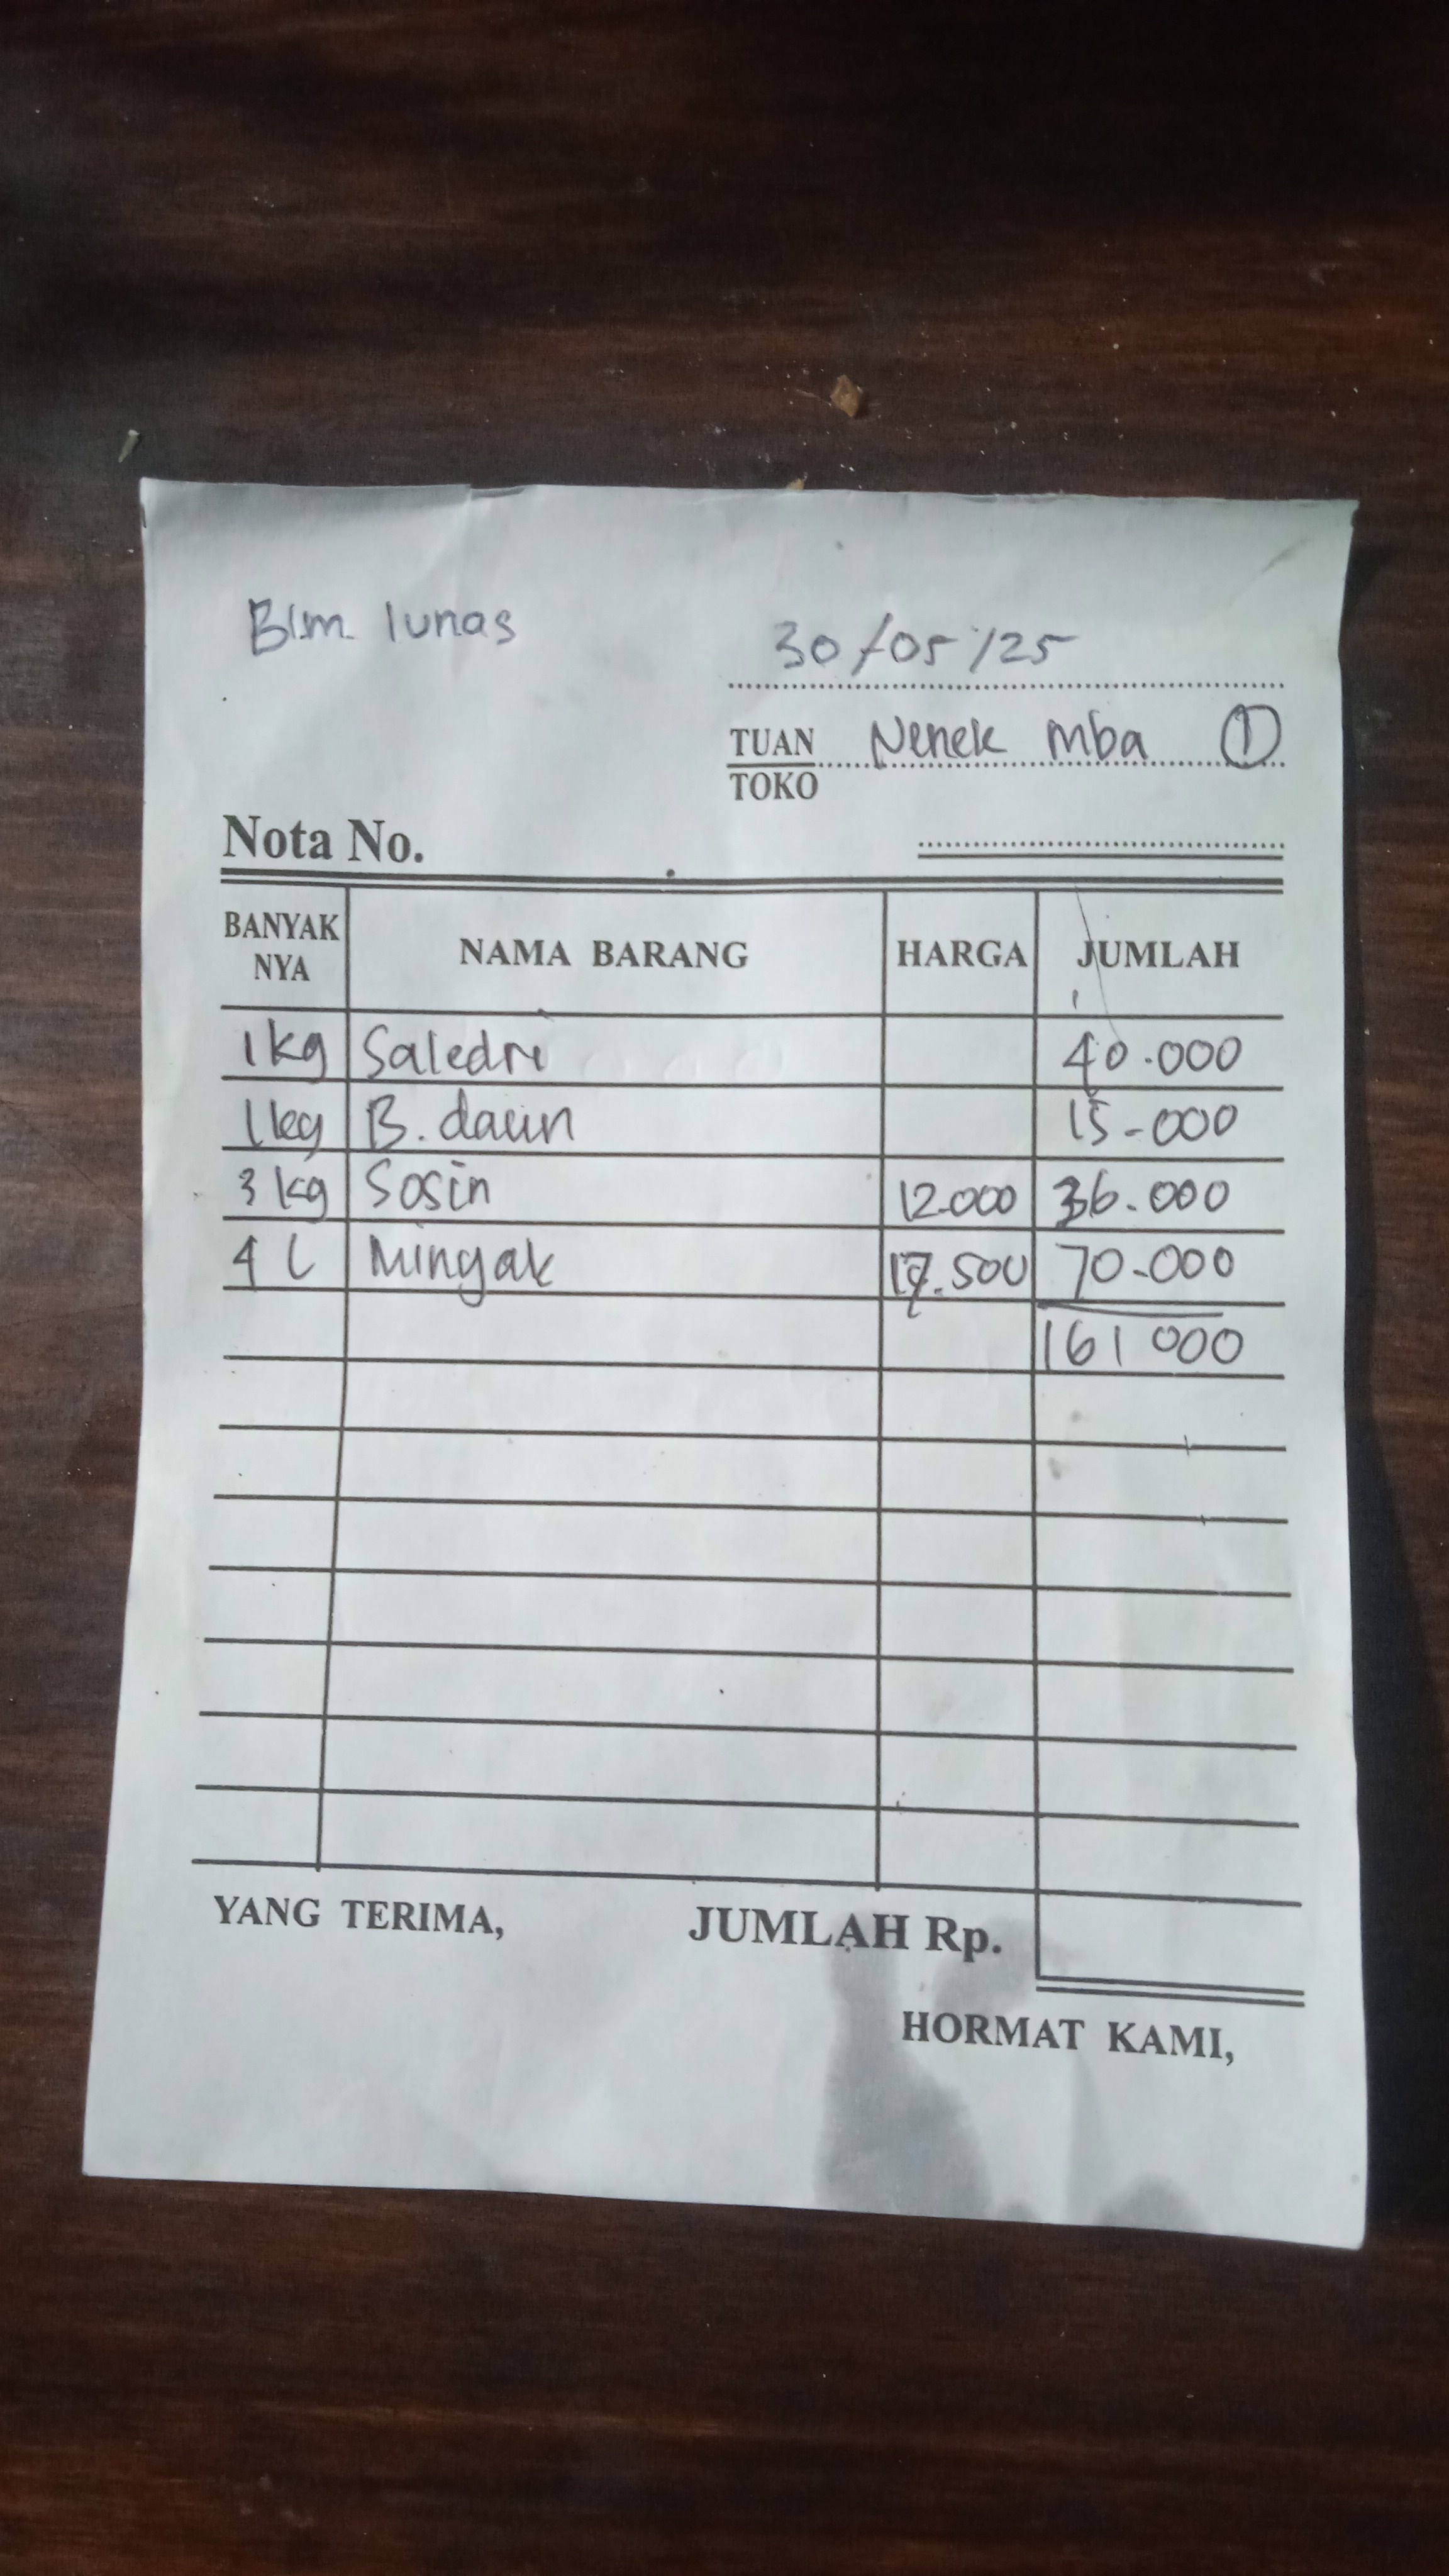 Blm. lunas
30/05/25
TUAN Nenek mba 1
TOKO
Nota No.
BANYAK NYA NAMA BARANG HARGA JUMLAH
1 kg Saledri 40.000
1 kg B. daun 15-000
3 kg Sosin 12.000 36.000
4 L Minyak 17.500 70.000
161 000
YANG TERIMA, JUMLAH Rp.
HORMAT KAMI,